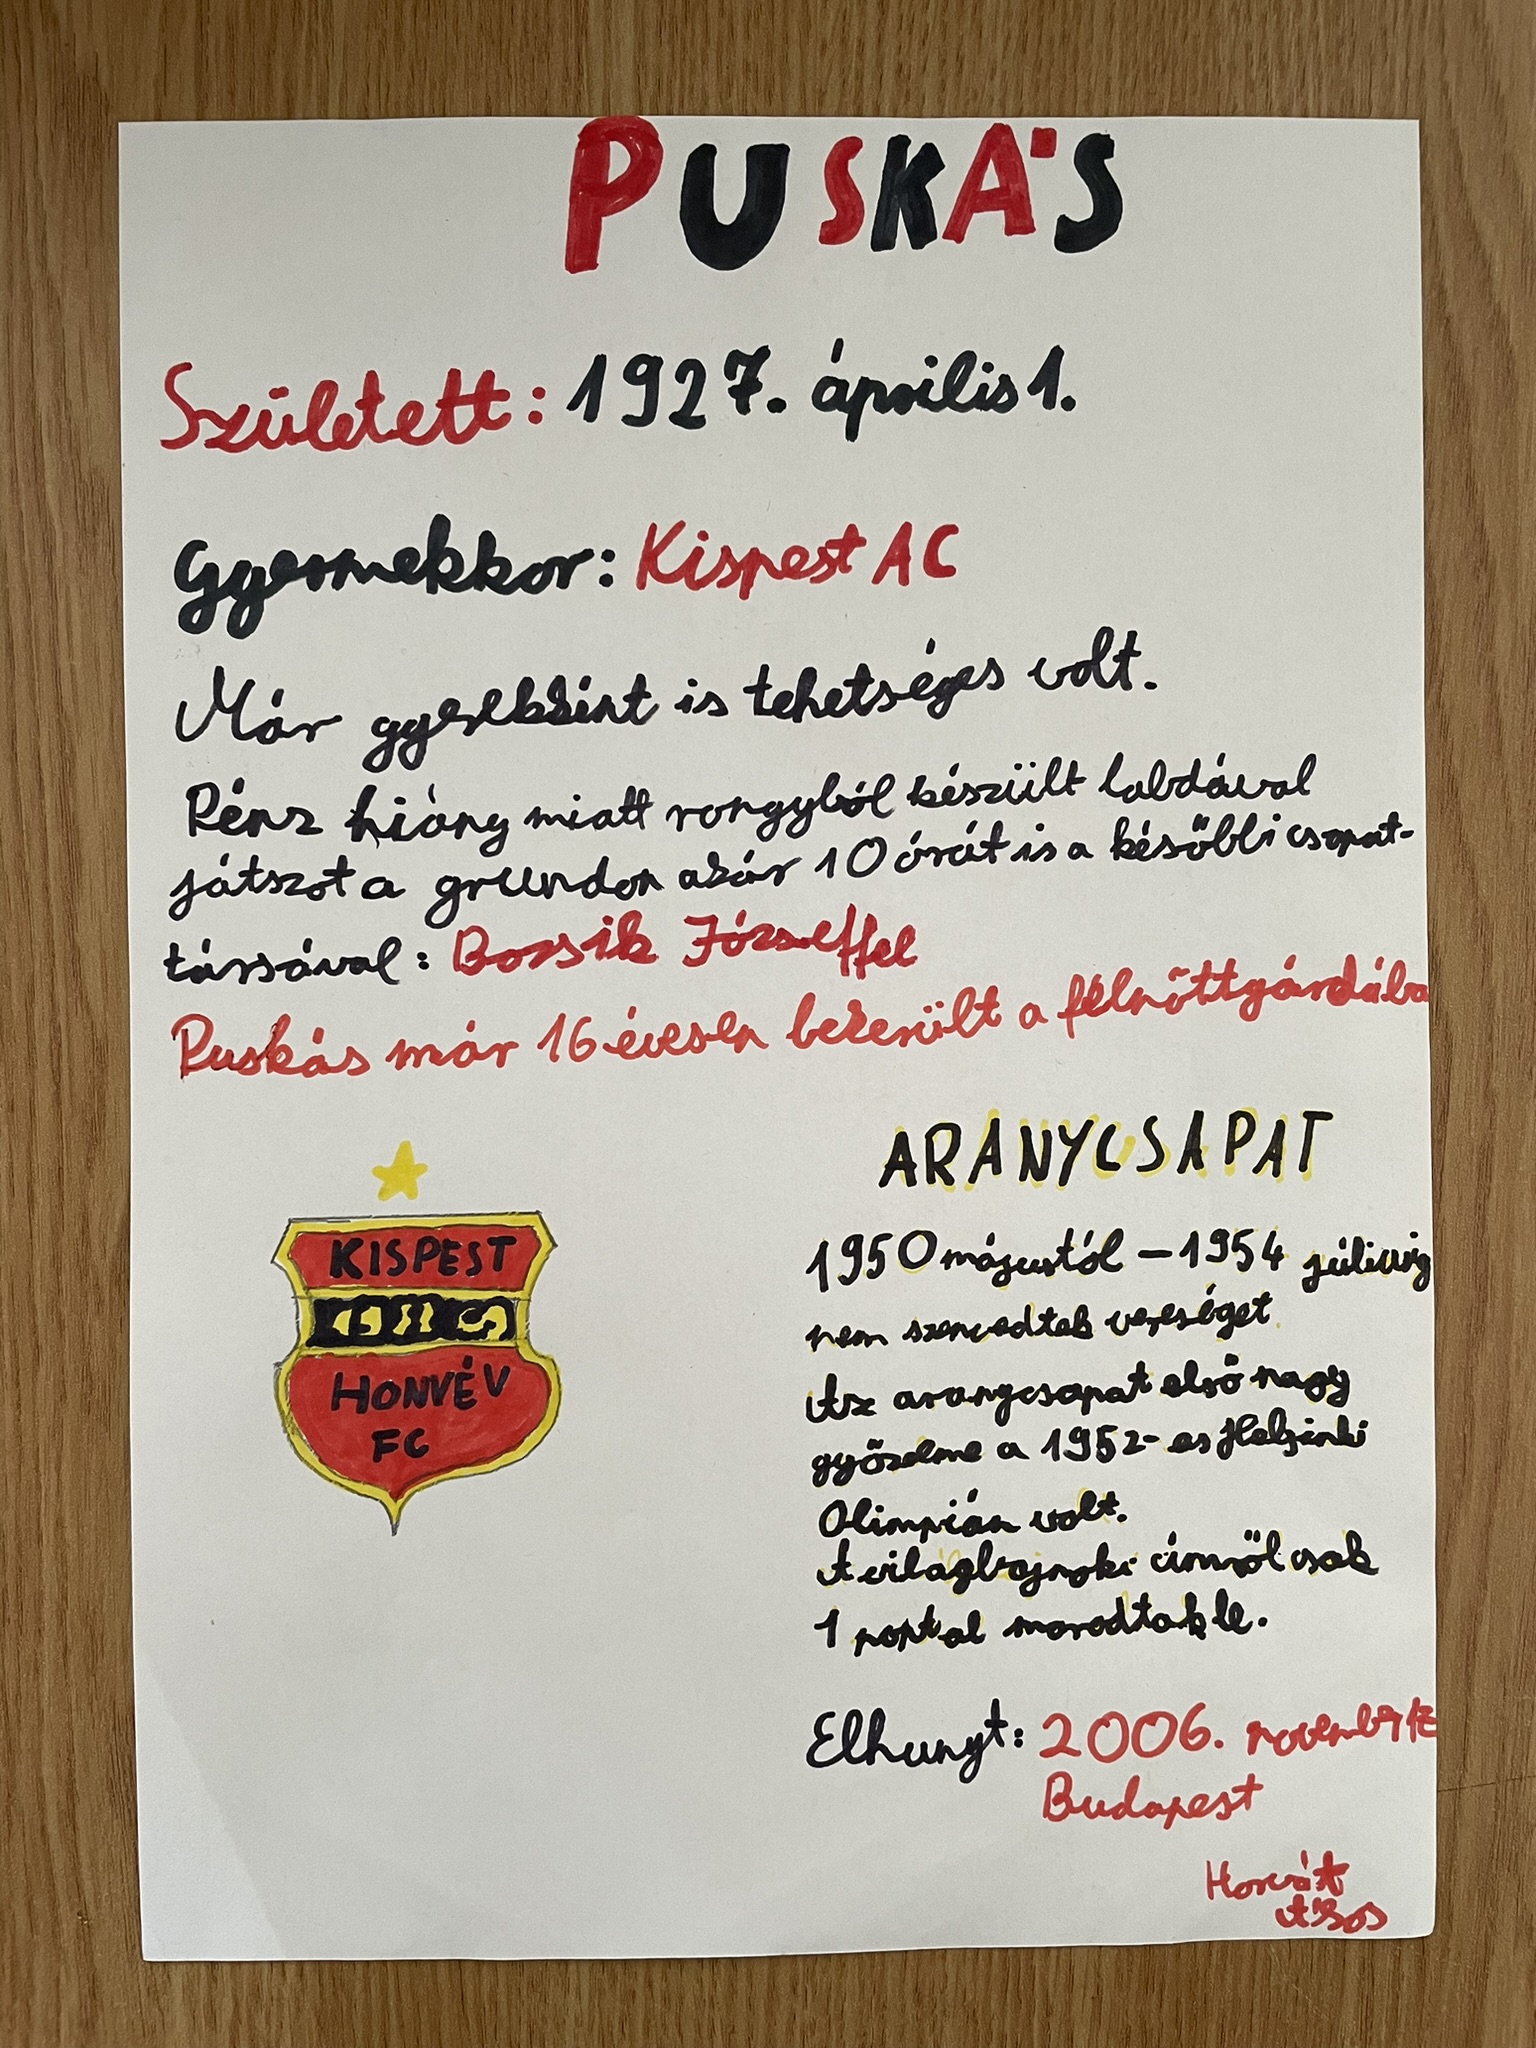 PUSKÁS
Született: 1927. április 1.
Gyermekkor: Kispest AC
Már gyerekként is tehetséges volt.
Pénz hiány miatt rongyból készült labdával
játszot a grundon akár 10 órát is a későbbi csapat-
társával: Bozsik Józseffel
Puskás már 16 évesen bekerült a felnőttgárdába
ARANYCSAPAT
1950 májustól – 1954 júliusig
nem szenvedtek vereséget
Az aranycsapat első nagy
győzelme a 1952-es Helsinki
Olimpián volt.
A világbajnoki címről csak
1 ponttal maradtak le.
Elhunyt: 2006. november
Budapest
Horvát
Ákos
KISPEST
HONVÉV
FC